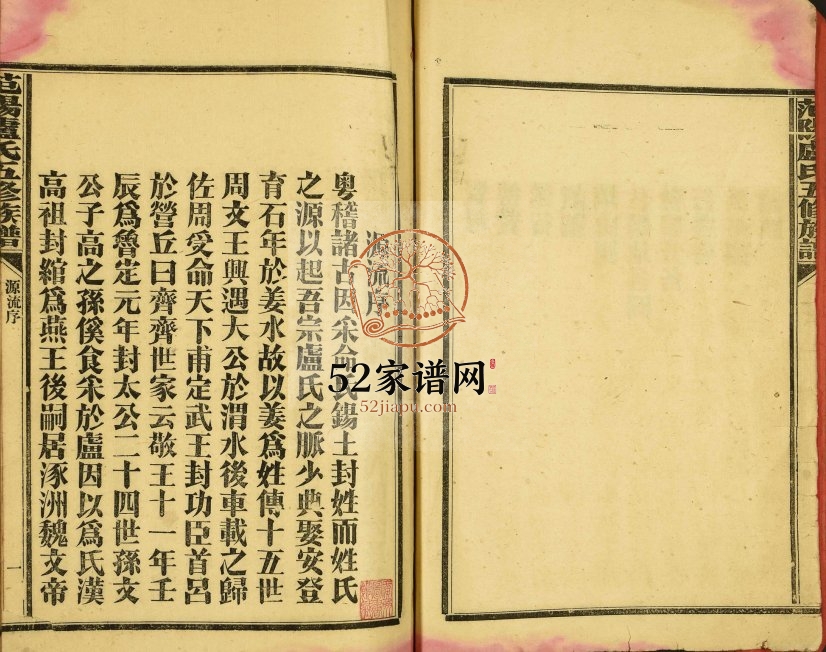 范陽盧氏五修族譜
源流序
粵稽諸古因采命氏錫土封姓而姓氏
之源以起吾宗盧氏之脈少典娶安登
育石年於姜水故以姜爲姓傳十五世
周文王興遇大公於渭水後車載之歸
佐周受命天下甫定武王封功臣首呂
於營立曰齊齊世家云敬王十一年壬
辰爲魯定元年封太公二十四世孫文
公子高之孫傒食采於盧因以爲氏漢
高祖封綰爲燕王後嗣居涿洲魏文帝
范陽盧氏五修族譜
源流序
一
52家谱网
52jiapu.com